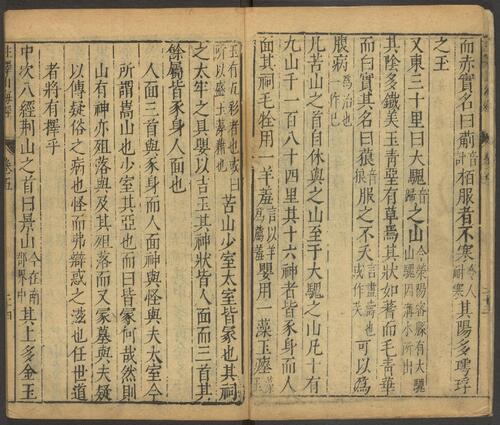 而赤實名曰葪音計柏服者不寒令人耐寒其陽多㻬琈
之玉
又東三十里曰大騩音歸之山今滎陽宻縣有大騩山騩固溝水所出
其陰多鐵美玉青堊有草焉其狀如蓍而毛青華
而白實其名曰䓤音狼服之不夭言盡壽也或作芺可以為
腹病為治也一作已
凡苦山之首自休與之山至于大騩之山凡十有
九山千一百八十四里其十六神者皆豕身而人
面其祠毛牷用一羊羞言以羊為薦羞嬰用一藻玉瘞藻玉
玉有五彩者也或曰所以盛玉藻藉也苦山少室太室皆冢也其祠
之太牢之具嬰以吉玉其神狀皆人面而三首其
餘屬皆豕身人面也
人面三首與豕身而人面神與怪與夫太室今
所謂嵩山也少室其亞也而曰皆冢何哉然則
山有神亦殂落與及其殂落而又冢墓與夫疑
以傳疑俗之病也怪而弗辯惑之滋也任世道
者將有擇乎
中次八經荆山之首曰景山今在南郡界中其上多金玉
卷五